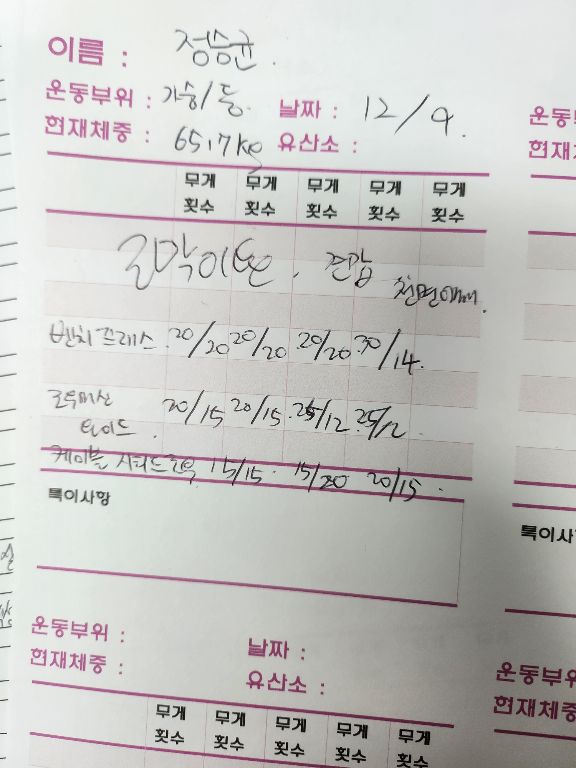 이름 : 정승균.
운동부위 : 가슴/등. 날짜 : 12/9.
현재체중 : 65.7kg 유산소 :
무게 무게 무게 무게 무게
횟수 횟수 횟수 횟수 횟수
벤치프레스 20/20 20/20 20/20 30/14.
로우머신 20/15 20/15 25/12 25/12.
케이블 시티드로우 15/15. 15/20 20/15.
특이사항
운동부위 : 날짜 :
현재체중 : 유산소 :
무게 무게 무게 무게 무게
횟수 횟수 횟수 횟수 횟수
운동
현재
특이사
운동부위
현재체중